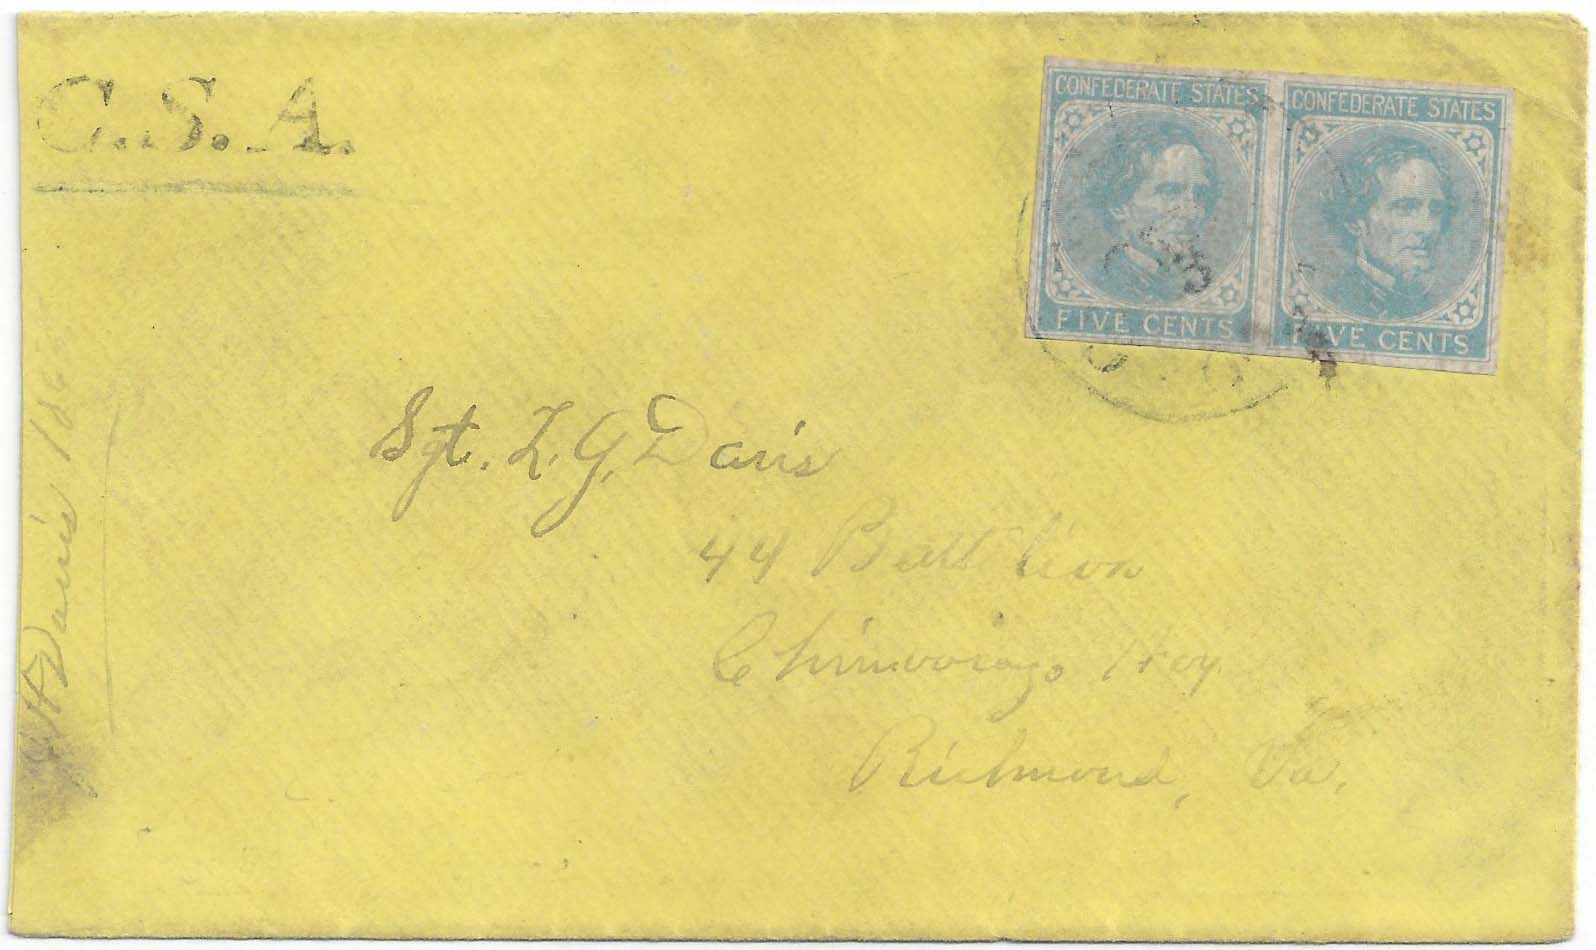 C.S.A.
CONFEDERATE STATES
FIVE CENTS
CONFEDERATE STATES
FIVE CENTS
Sgt. L. G. Davis
44 Battlion
Chimoorazo
Richmond, Va.
Davis